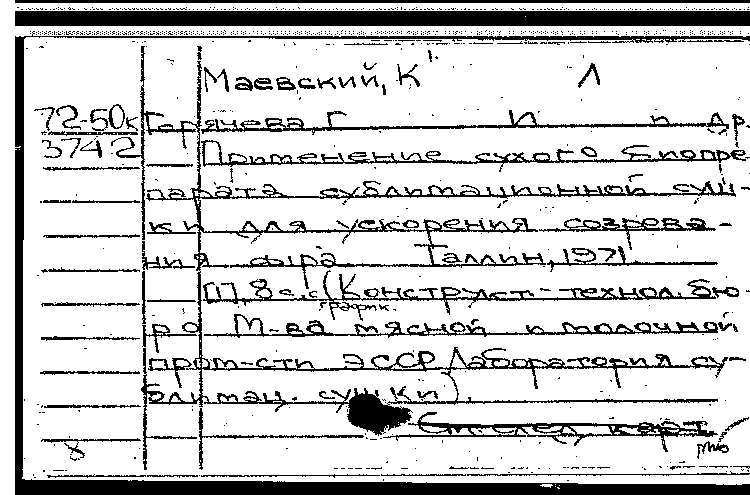 Маевский, К Л
72-50к Горячева, Г И и др.
37412 Применение сухого биопре-
парата сублимационной суш-
ки для ускорения созрева-
ния сыра Таллин, 1971.
[1], 8 с., с (Конструкт.-технол. бю-
график.
ро М-ва мясной и молочной
пром-сти ЭССР Лаборатория су-
блимац. сушки).
См след. карт.
8